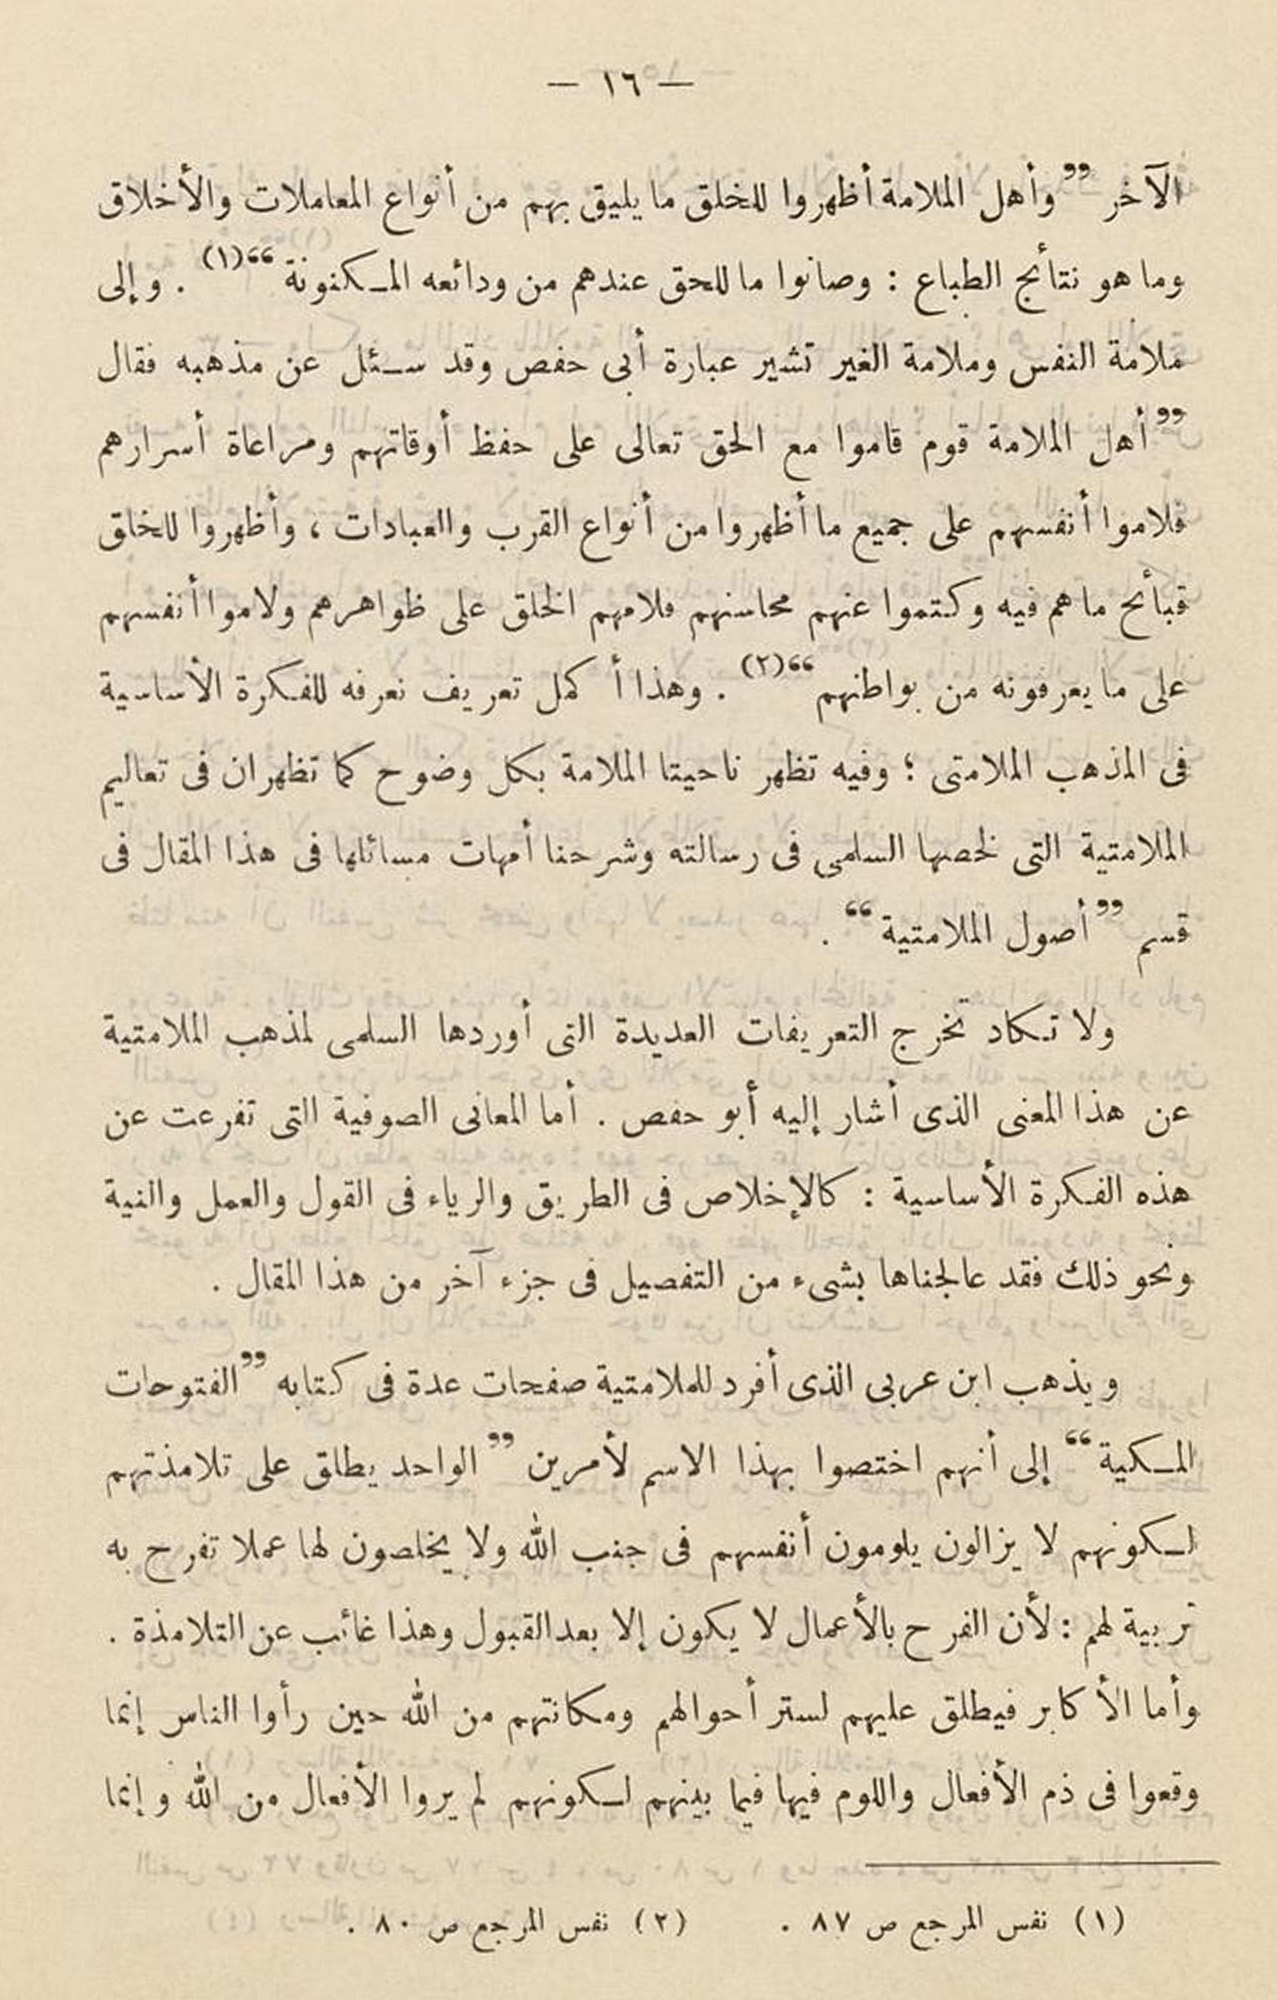 — ١٦ —
الآخر ”وأهل الملامة أظهروا للخلق ما يليق بهم من أنواع المعاملات والأخلاق
وما هو نتأئج الطباع : وصانوا ما للحق عندهم من ودائعه المكنونة“(١) . وإلى
ملامة النفس وملامة الغير تشير عبارة أبى حفص وقد سئل عن مذهبه فقال
”أهل الملامة قوم قاموا مع الحق تعالى على حفظ أوقاتهم ومراعاة أسرارهم
فلاموا أنفسهم على جميع ما أظهروا من أنواع القرب والعبادات ، وأظهروا للخلق
قبأئح ما هم فيه وكتموا عنهم محاسنهم فلامهم الخلق على ظواهرهم ولاموا أنفسهم
على ما يعرفونه من بواطنهم“(٢) . وهذا أكمل تعريف نعرفه للفكرة الأساسية
فى المذهب الملامتى ؛ وفيه تظهر ناحيتا الملامة بكل وضوح كما تظهران فى تعاليم
الملامتية التى لخصها السلمى فى رسالته وشرحنا أمهات مسائلها فى هذا المقال فى
قسم ”أصول الملامتية“ .
ولا تكاد تخرج التعريفات العديدة التى أوردها السلمى لمذهب الملامتية
عن هذا المعنى الذى أشار إليه أبو حفص . أما المعانى الصوفية التى تفرعت عن
هذه الفكرة الأساسية : كالإخلاص فى الطريق والرياء فى القول والعمل والنية
ونحو ذلك فقد عالجناها بشىء من التفصيل فى جزء آخر من هذا المقال .
ويذهب ابن عربى الذى أفرد للملامتية صفحات عدة فى كتابه ”الفتوحات
المكية“ إلى أنهم اختصوا بهذا الاسم لأمرين ”الواحد يطلق على تلامذتهم
لكونهم لا يزالون يلومون أنفسهم فى جنب الله ولا يخلصون لها عملا تفرح به
تربية لهم : لأن الفرح بالأعمال لا يكون إلا بعد القبول وهذا غائب عن التلامذة .
وأما الأكابر فيطلق عليهم لستر أحوالهم ومكانتهم من الله حين رأوا الناس إنما
وقعوا فى ذم الأفعال واللوم فيها فيما بينهم لكونهم لم يروا الأفعال من الله وإنما
(١) نفس المرجع ص ٨٧ . (٢) نفس المرجع ص ٨٠ .